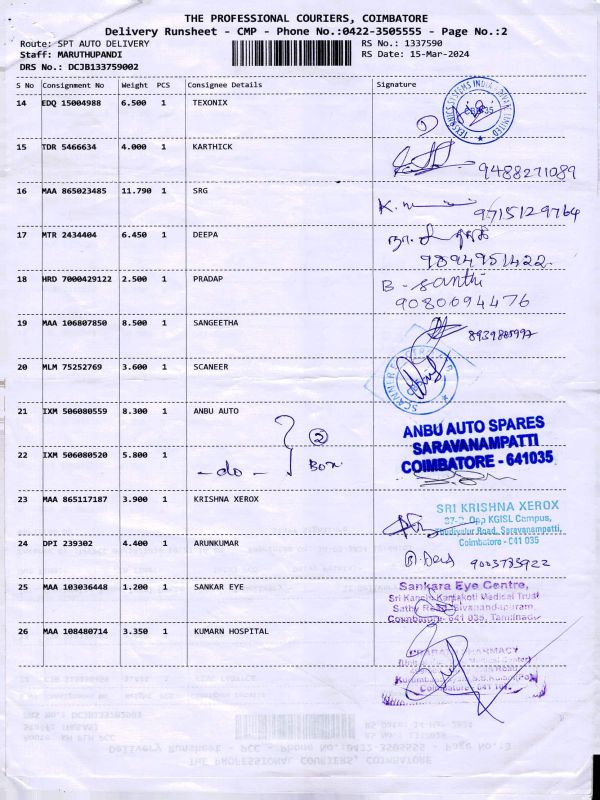 THE PROFESSIONAL COURIERS, COIMBATORE
Delivery Runsheet - CMP - Phone No.:0422-3505555 - Page No.:2
Route: SPT AUTO DELIVERY RS No.: 1337590
Staff: MARUTHUPANDI RS Date: 15-Mar-2024
DRS No.: DCJB133759002
S No Consignment No Weight PCS Consignee Details Signature
14 EDQ 15004988 6.500 1 TEXONIX
1
15 TDR 5466634 4.000 1 KARTHICK
9488271089
16 MAA 865023485 11.790 1 SRG
K.
9715129764
17 MTR 2434404 6.450 1 DEEPA
9894951422
18 HRD 7000429122 2.500 1 PRADAP B - Santhi
9080694476
19 MAA 106807850 8.500 1 SANGEETHA
20 MLM 75252769 3.600 1 SCANEER
21 IXM 506080559 8.300 1 ANBU AUTO
ANBU AUTO SPARES
2
SARAVANAMPATTI
22 IXM 506080520 5.800 1 - do - Box
COIMBATORE - 641035
23 MAA 865117187 3.900 1 KRISHNA XEROX
SRI KRISHNA XEROX
Opp KGISL Campus,
Road, Saravanampatti,
Coimbatore - 641 035
24 DPI 239302 4.400 1 ARUNKUMAR
9003735922
25 MAA 103036448 1.200 1 SANKAR EYE
Sankara Eye Centre,
Sri Kanchi Kamakoti Medical Trust
Sathy Road, Sivanandapuram,
Coimbatore - 641 035, Tamilnadu
26 MAA 108480714 3.350 1 KUMARN HOSPITAL
PHARMACY
Coimbatore - 641